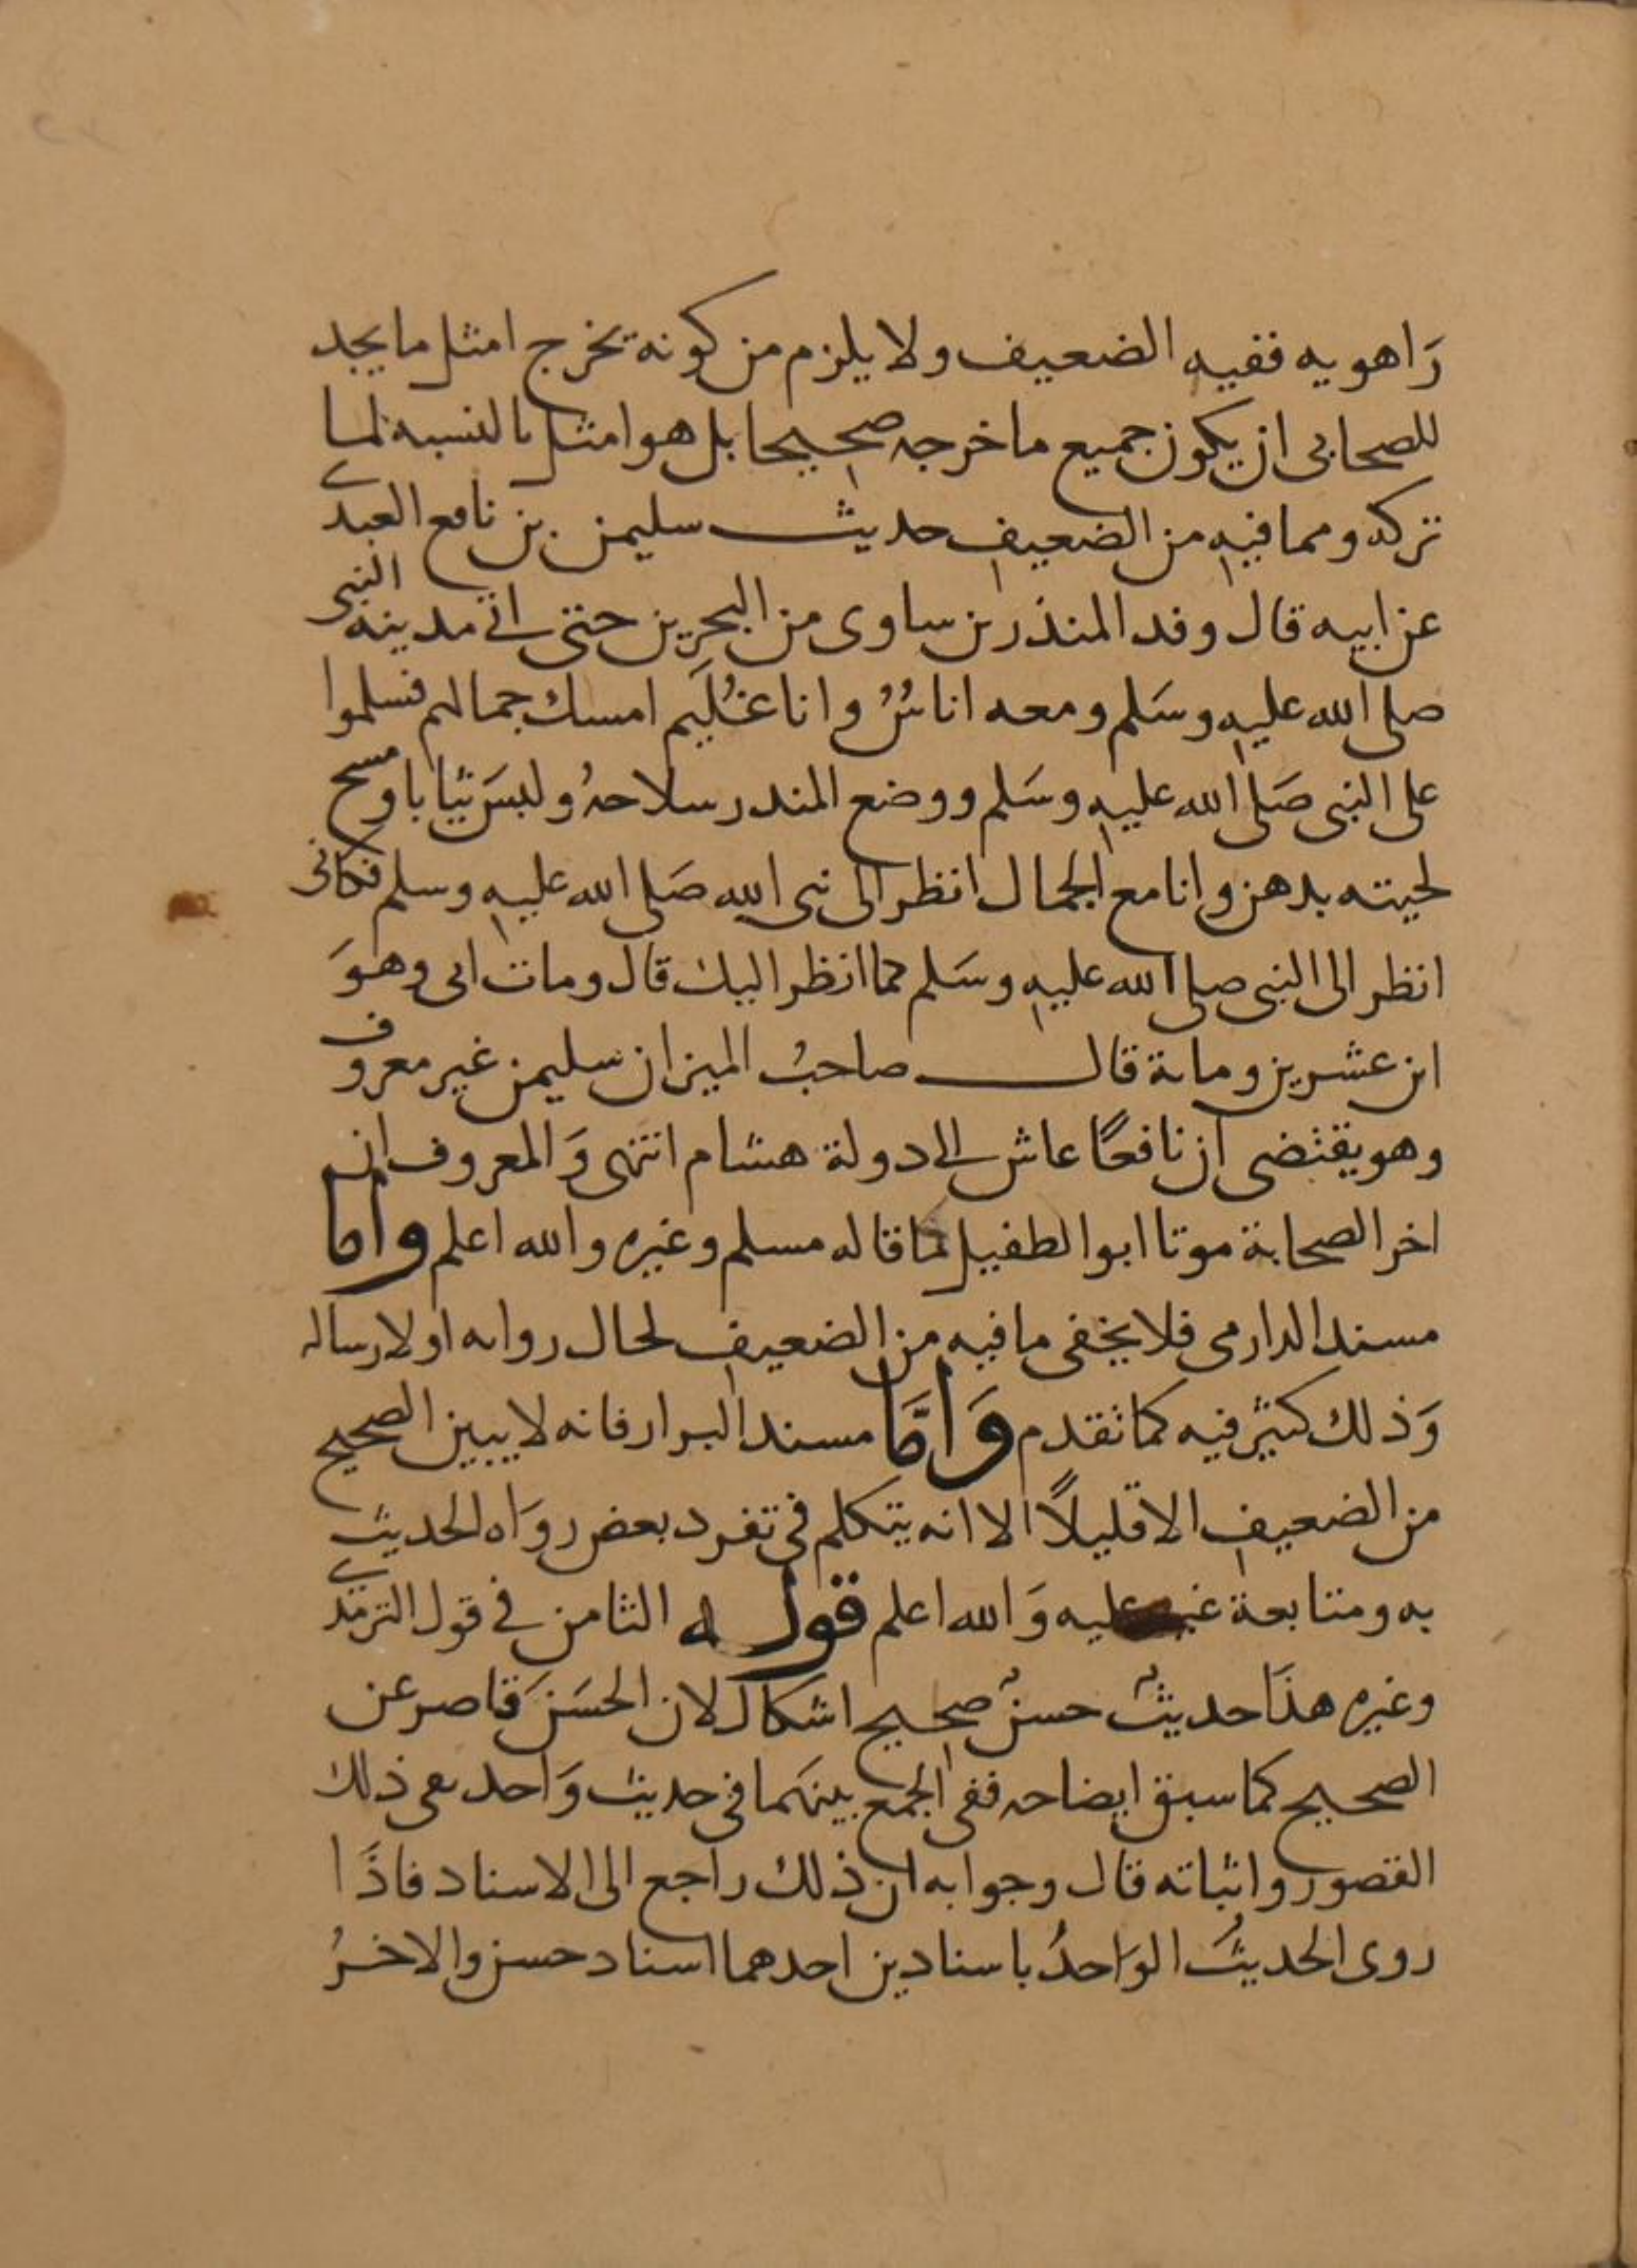 رَاهويه ففيه الضعيف ولا يلزم من كونه يخرج امثل ما يجد
للصحابى ان يكون جميع ما خرجه صحيحا بل هو امثل بالنسبه لما
تركه ومما فيه من الضعيف حديث سليمن بن نافع العبدى
عن ابيه قال وفد المنذر بن ساوى من البحرين حتى اتى مدينه النبى
صلى الله عليه وسَلم ومعه اناسٌ وانا غُلَيم امسك جمالهم فسلموا
على النبى صَلى الله عليه وسَلم ووضع المندر سلاحهُ ولبسَ ثيابا ومسح
لحيته بدهن وانا مع الجمال انظر الى نبى الله صَلى الله عليه وسلم فكانى
انظر الى النبى صلى الله عليه وسَلم كما انظر اليك قال ومات ابى وهوَ
ابن عشرين وماىة قال صاحبُ الميزان سليمن غير معروف
وهو يقتضى ان نافعًا عاش الى دولة هشام انتهى وَالمعروف ان
اخر الصحابة موتا ابو الطفيل كما قاله مسلم وغيره والله اعلم واما
مسند الدارمى فلا يخفى ما فيه من الضعيف لحال رواته او لارساله
وَذلك كثير فيه كما تقدم وَامَّا مسند البزار فانه لا يبين الصحيح
من الضعيف الا قليلاً الا انه يتكلم فى تفرد بعض روَاه الحديث
به ومتابعة غيره عليه وَالله اعلم قوله الثامن فى قول الترمذى
وغيره هذَا حديثٌ حسنٌ صحيح اشكال لان الحسَنَ قاصر عن
الصحيح كما سبق ايضاحه ففى الجمع بينهَما فى حديث وَاحد نفى ذلك
القصور واثباته قال وجوابه ان ذلك راجع الى الاسناد فاذَا
روى الحديثُ الوَاحدُ باسنادين احدهما اسناد حسن والاخرُ